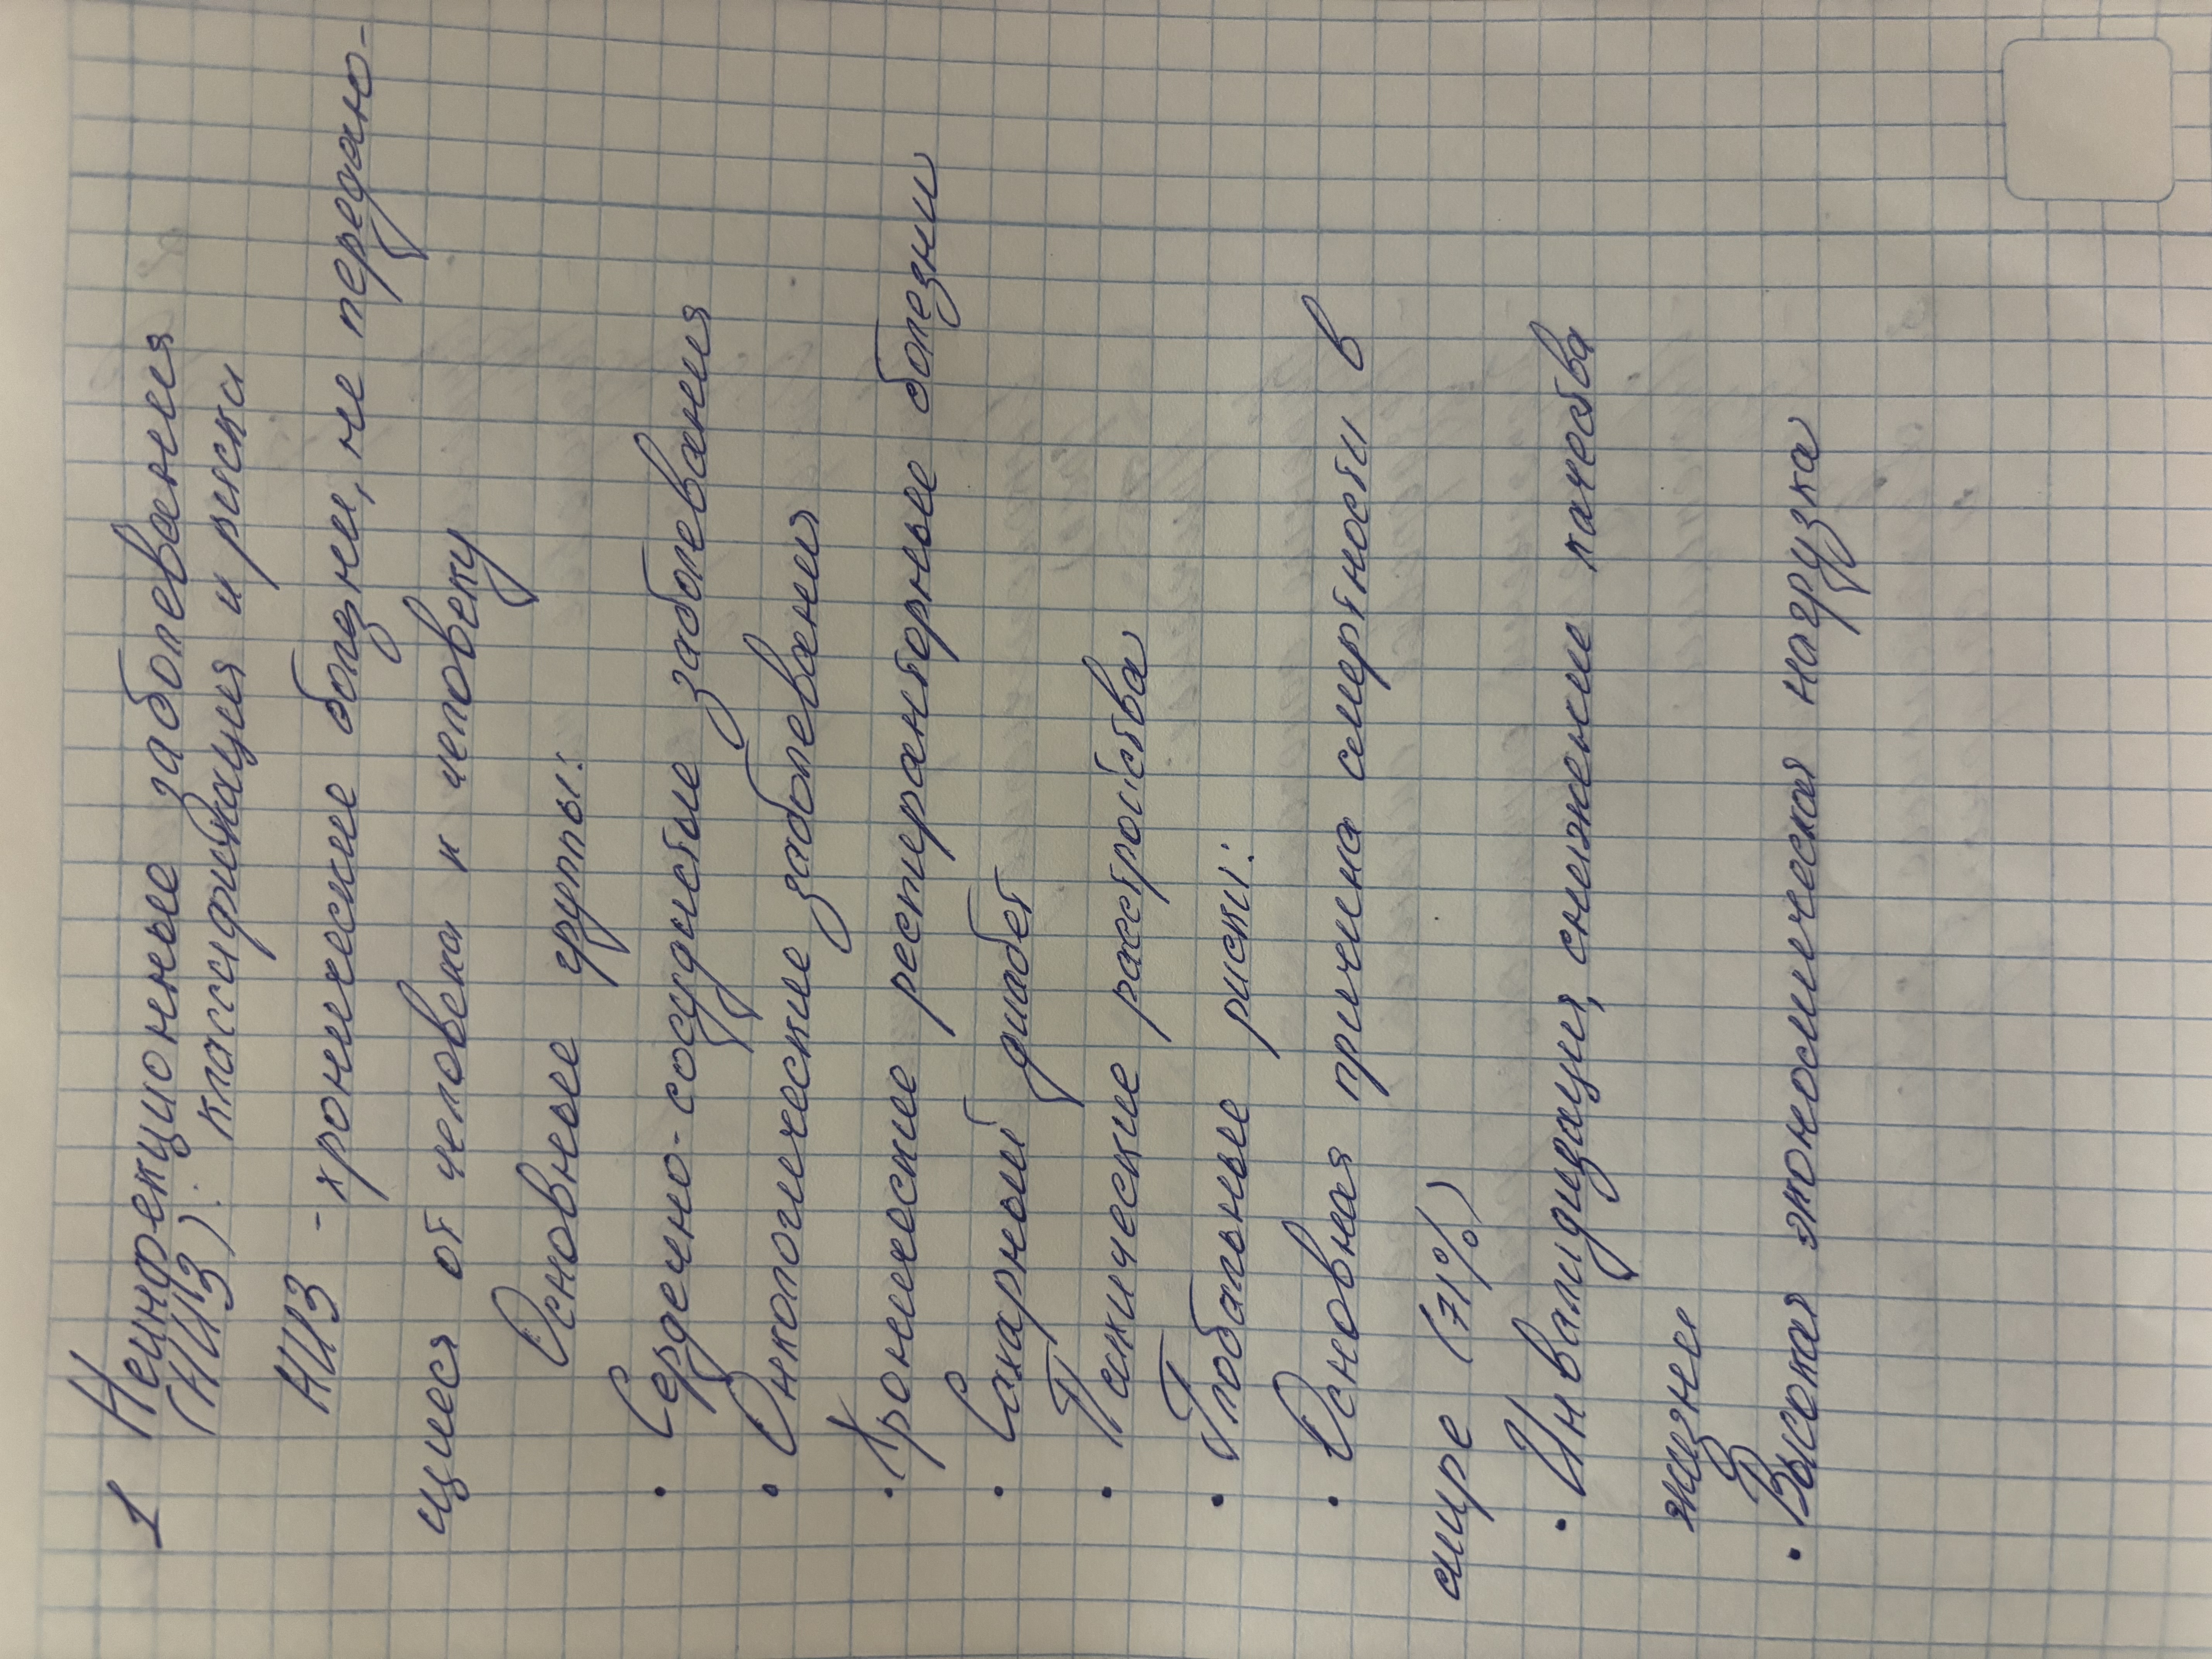 1 Неинфекционные заболевания
(НИЗ): классификация и риски
НИЗ - хронические болезни, не передаю-
щиеся от человека к человеку
Основные группы:
• Сердечно-сосудистые заболевания
• Онкологические заболевания
• Хронические респираторные болезни
• Сахарный диабет
• Психические расстройства
• Глобальные риски:
• Основная причина смертности в
мире (71%)
• Инвалидизация, снижение качества
жизни
• Высокая экономическая нагрузка